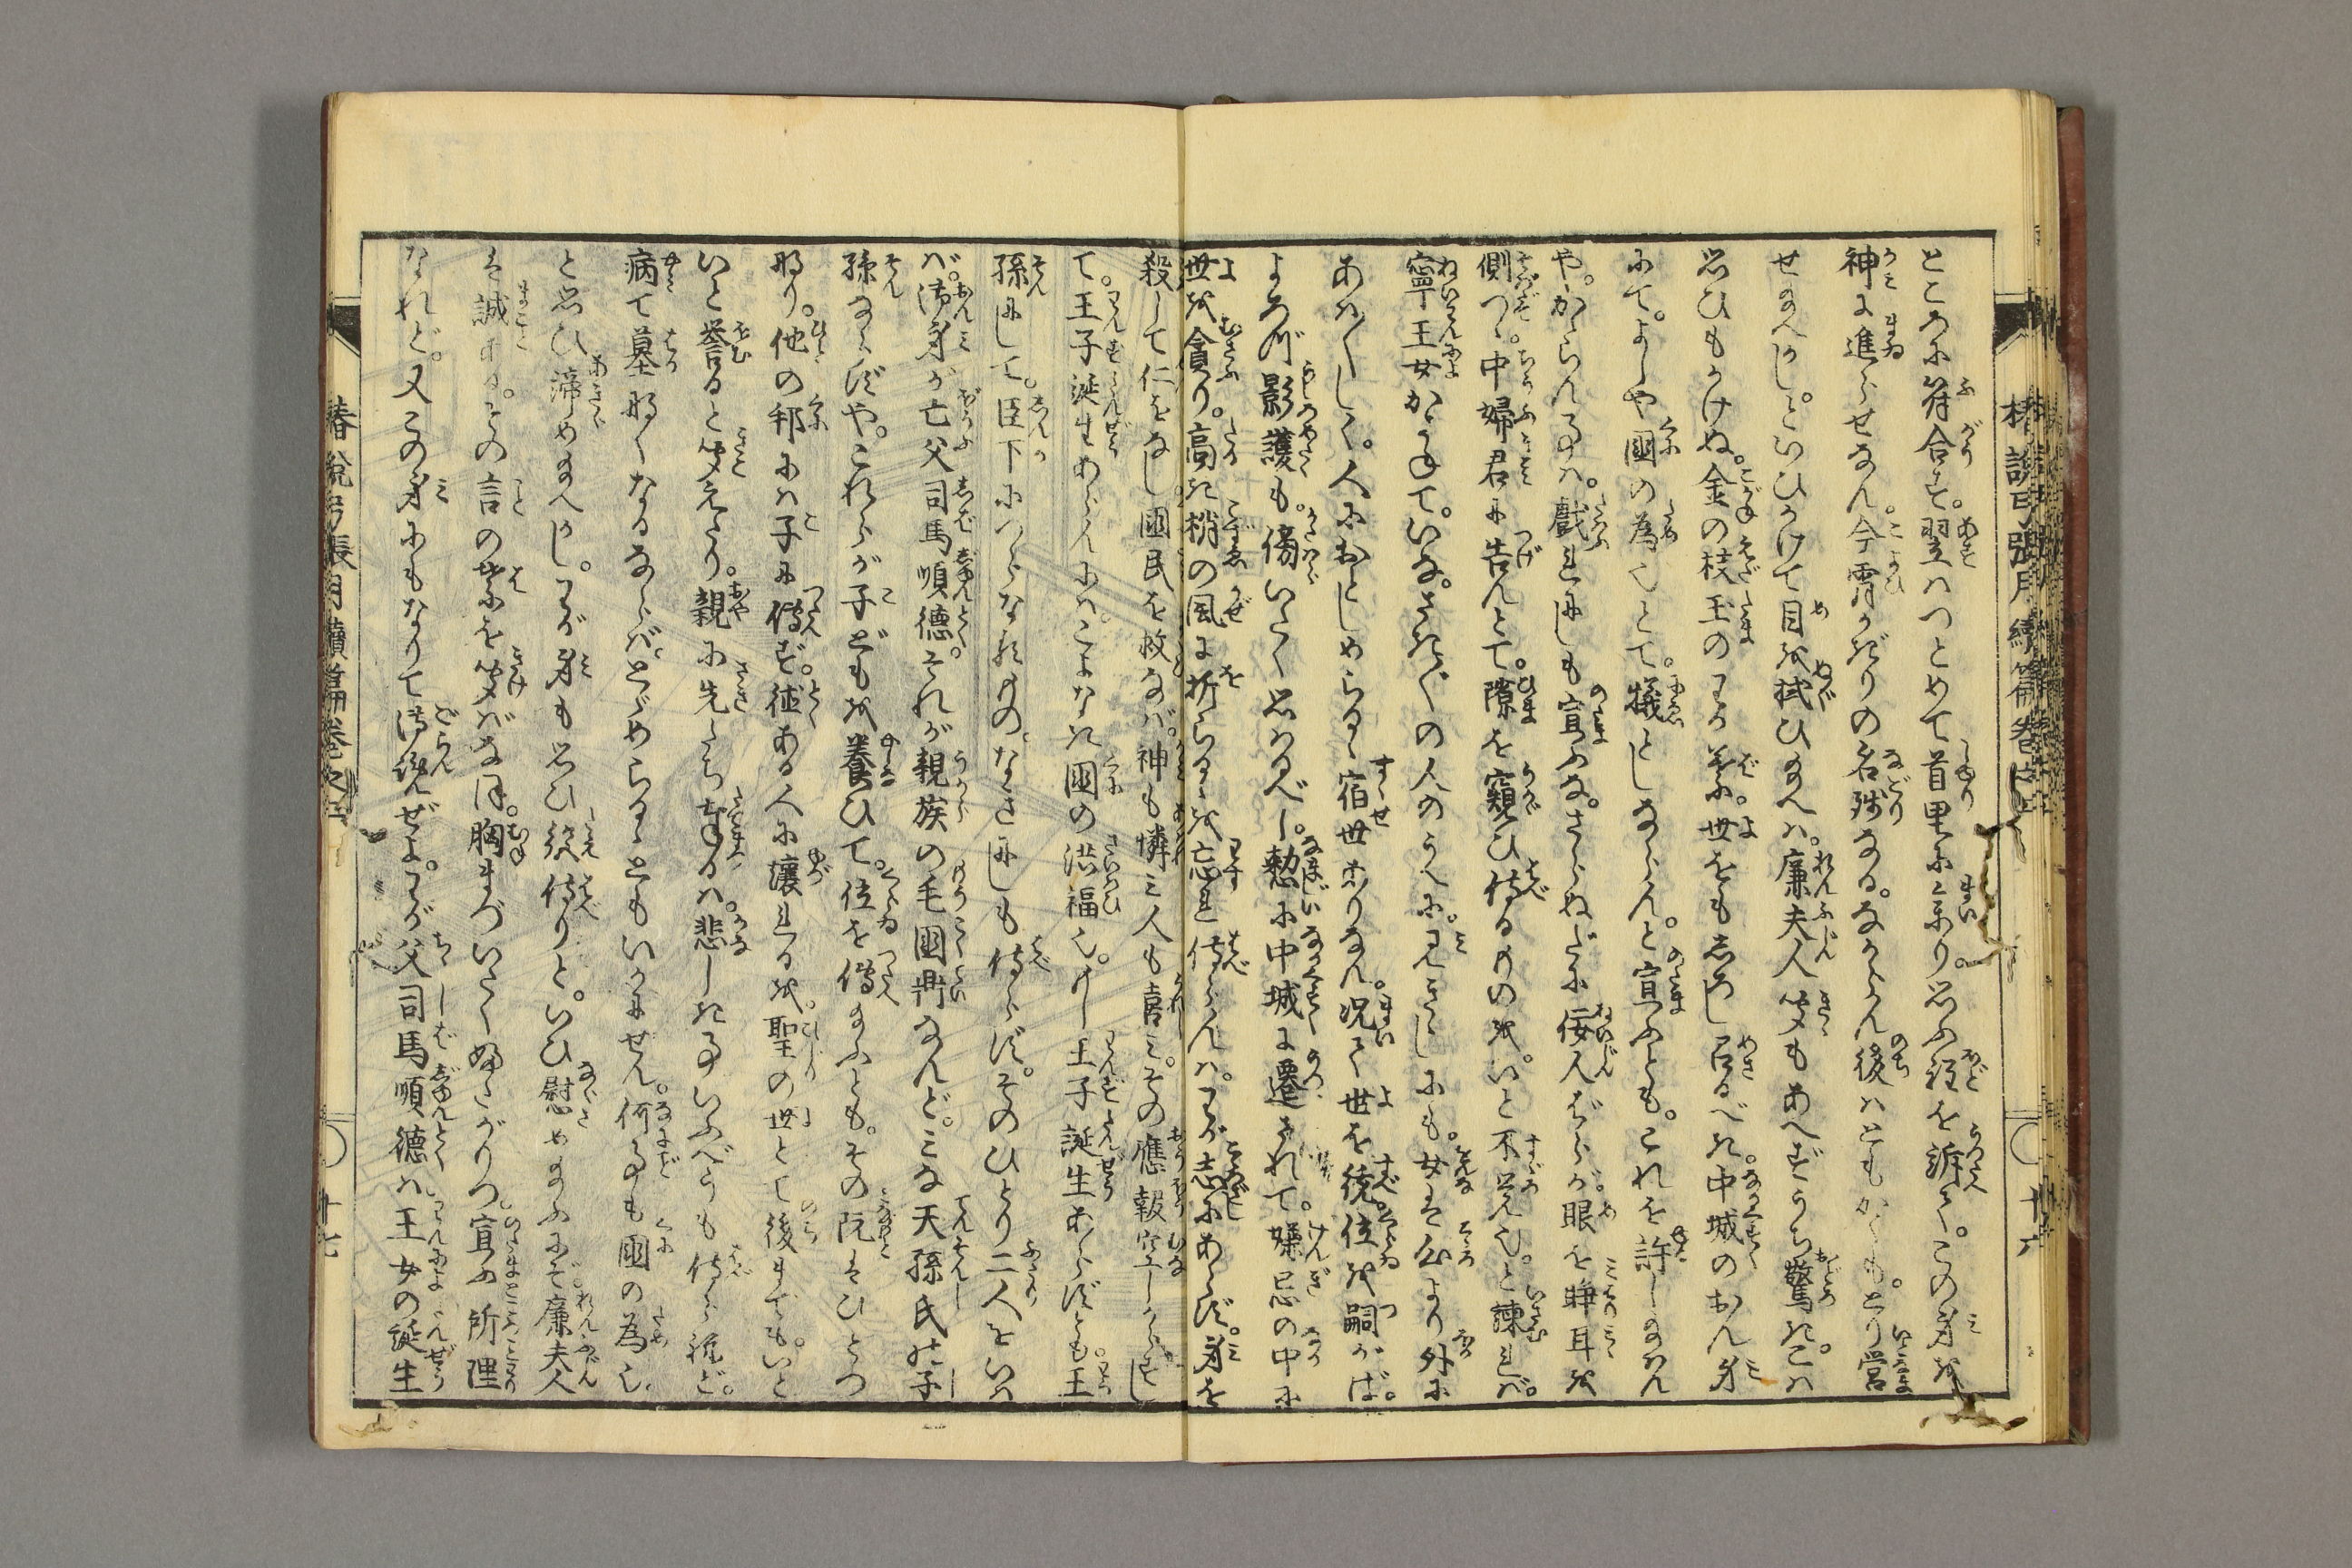 ところに符合す。翌はつとめて首里に参り。思ふ程を訴て。この身を
神に進らせなん。今宵かぎりの名残なる。なからん後はともかくも。とり営
せ給へかし。といひかけて目を拭ひ給へは。廉夫人聞もあへずうち驚き。こは
思ひもかけぬ。金の枝玉のわか葉。世をもしろし召るべき。中城のおん身
にて。よしや國の為也とて。犠としならん。と宣ふとも。これを許し給はん
や。かゝらん事は。戯れにしも宣ふな。さらぬだに佞人ばらが。眼を睜耳を
側つゝ。中婦君に告んとて。隙を窺ひ侍るものを。いと不覚也。と諌れば。
寧王女かうべをて。いな。さればの人のうへに。見きゝしにも。女は公より外に
あは〳〵しく。人におとしめらるゝ宿世ありなん。况て世を統位を嗣がば。
よろづ影護も。傷いたく思はるべし。憖に中城に遷されて。嫌忌の中に
世を貪り。高き梢の風に折らるゝを忘れ侍らんは。わが志にあらず。身を
殺して仁をなし國民を救なば。神も憐み人も喜み。その應報空しからずし
て。王子誕生あらんには。こよなき國の洪福也。もし王子誕生あらずとも。王
孫にして。臣下につらなるもの。なきにしも侍らず。そのひとり二人をいは
ば。御身が亡父司馬順德。それが親族の毛國鼎なんど。みな天孫氏の子
孫ならずや。これらが子どもを養ひて。位を傳給ふとも。その阮はひとつ
なり。他の邦には子に傳ず。徳ある人に讓れるを。聖の世とて後までも。いと
いと譽ると聞えたり。親に先たち奉るは。悲しき事いふべうも侍らねど。
病て墓なくなるならば。とゞめらるゝともいかにせん。何事も國の為也
と思ひ諦め給へかし。わが身も思ひ絶侍りと。いひ慰め給ふにぞ。廉夫人
は誠ある。その言の葉を聞ばなほ。胸まづいたく塞がりつ。宣ふ所理
なれど。又この身にもなりて御覧ぜよ。わが父司馬順德は。王女の誕生
椿説弓張月續篇卷之三
十六
椿説弓張月續篇卷之三
十七